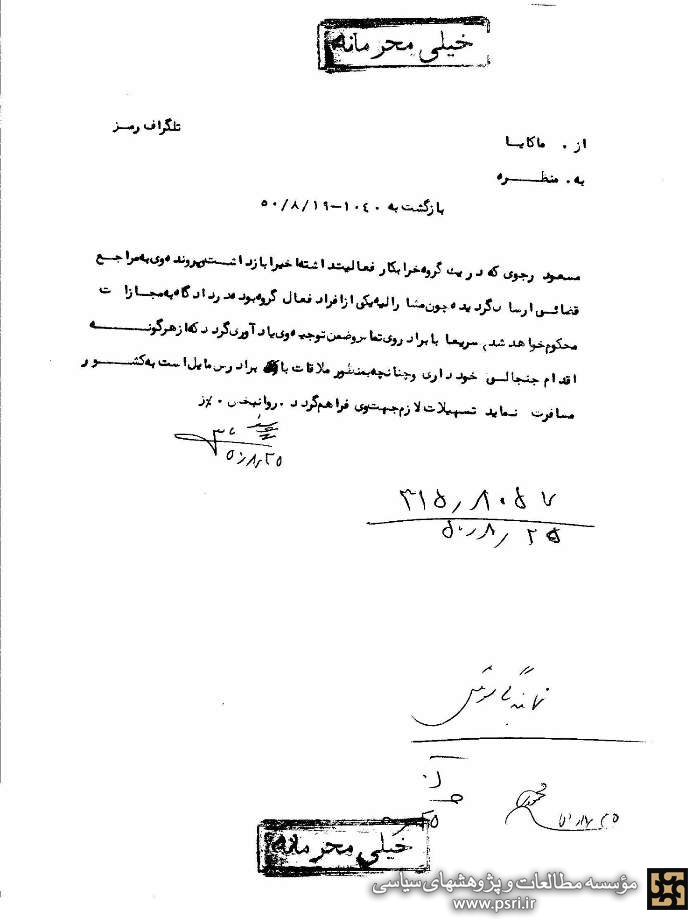 خیلی محرمانه
تلگراف رمز
از . ماکایسا
به . منظره
بازگشت به ۱۰٤۰-۵۰/۸/۱۹
مسعود رجوی که در یک گروه خرابکار فعالیت داشته اخیرا بازداشت و پرونده وی به مراجع
قضائی ارسال گردیده چون مشارالیه یکی از افراد فعال گروه بوده در دادگاه به مجازات
محکوم خواهد شد. سریعا با برادر وی تماس و ضمن توجیه وی یادآوری گردد که از هرگونه
اقدام جنجالی خودداری و چنانچه بمنظور ملاقات با برادرش مایل است به کشور
مسافرت نماید تسهیلات لازم جهت وی فراهم گردد .
۵۰/۸/۲۵
۳۱۵/۸۰۵۷
۵۰/۸/۲۵
خیلی محرمانه
مؤسسه مطالعات و پژوهشهای سیاسی
www.psri.ir